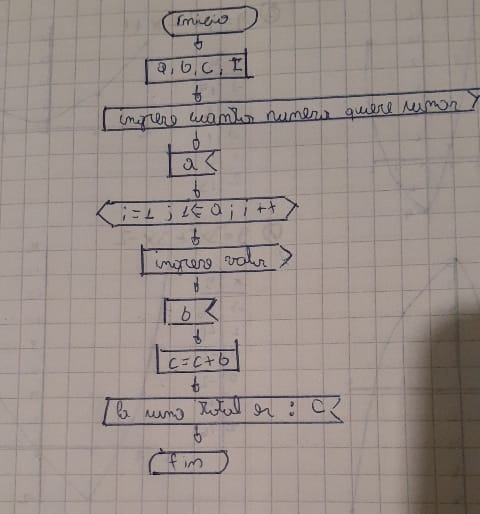 inicio
a, b, c, I
ingrese cuantos numeros quiere sumar
a
i=1 ; 1≥a ; i++
ingrese valor
b
c=c+b
la suma total es : C
fin